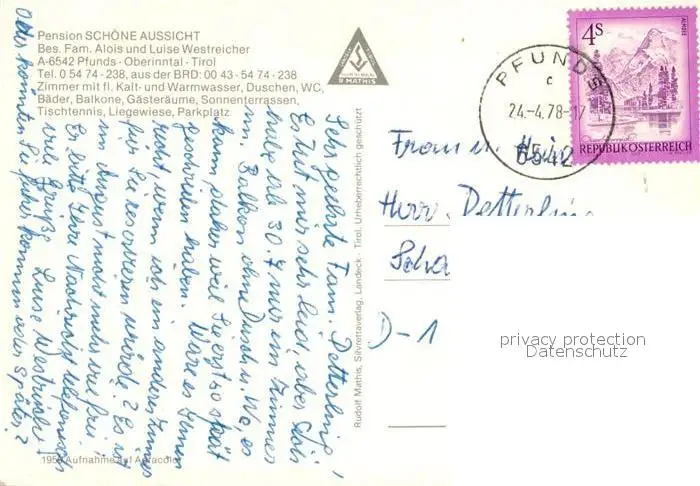 Pension SCHÖNE AUSSICHT
Bes. Fam. Alois und Luise Westreicher
A-6542 Pfunds · Oberinntal · Tirol
Tel. 0 54 74 - 238, aus der BRD: 00 43 - 54 74 - 238
Zimmer mit fl. Kalt- und Warmwasser, Duschen, WC,
Bäder, Balkone, Gästeräume, Sonnenterrassen,
Tischtennis, Liegewiese, Parkplatz
R MATHIS
Sehr geehrte Fam. Detterling!
Es tut mir sehr leid, aber
ab 30.7 nur ein Zimmer
m. Balkon ohne Dusch u. Wc, es
kam daher weil Sie erst so spät
geschrieben haben. Wäre es Ihnen
recht wenn ich ein anderes Zimmer
für Sie reservieren würde? Es ist
im August nicht mehr frei!
Erbitte Ihre Nachricht telefonisch
viele Grüße Luise Westreicher
Oder könnten Sie früher kommen oder später?
Rudolf Mathis, Silvrettaverlag, Landeck - Tirol. Urheberrechtlich geschützt
Aufnahme auf Agfacolor
PFUNDS
c
24.-4.78-17
6542
4S
ALMSEE
REPUBLIK ÖSTERREICH
Frau u.
Herr. Detterling
Scha
D-1
privacy protection
Datenschutz